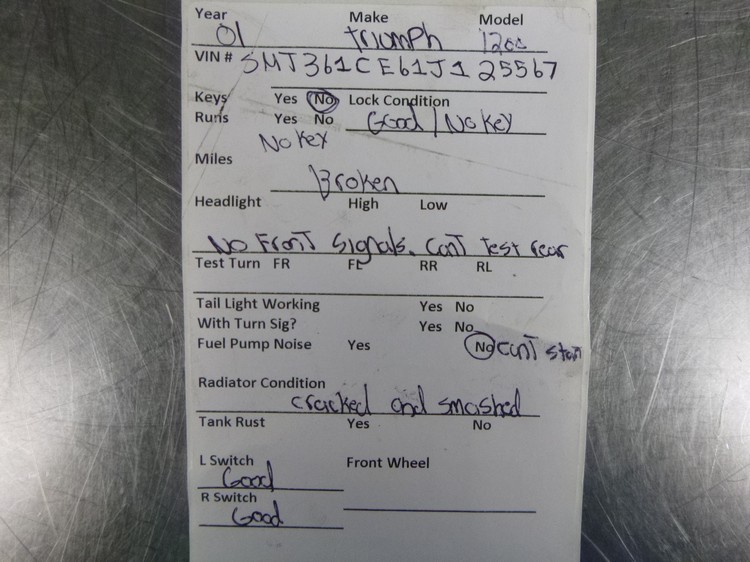 Year Make Model
01 triumph 1200
VIN # SMT361CE61J125567
Keys Yes No Lock Condition
Runs Yes No Good / No Key
No Key
Miles
Broken
Headlight High Low
No Front Signals. Can't test rear
Test Turn FR FL RR RL
Tail Light Working Yes No
With Turn Sig? Yes No
Fuel Pump Noise Yes No can't start
Radiator Condition
cracked and smashed
Tank Rust Yes No
L Switch Front Wheel
Good
R Switch
Good